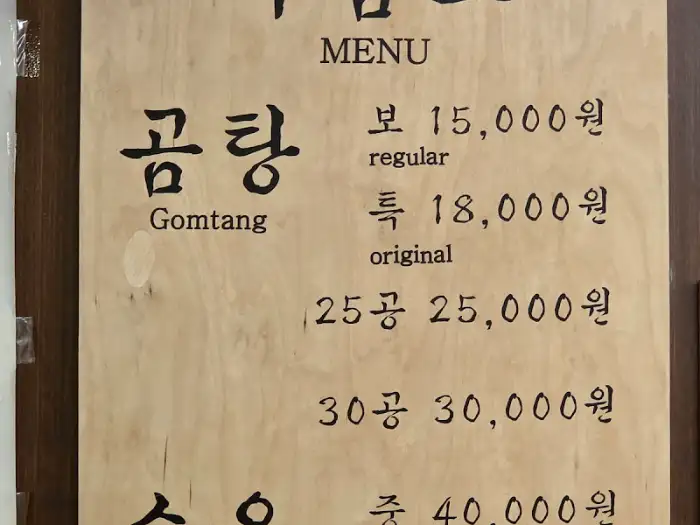 MENU
곰탕
Gomtang
보 15,000원
regular
특 18,000원
original
25공 25,000원
30공 30,000원
중 40,000원